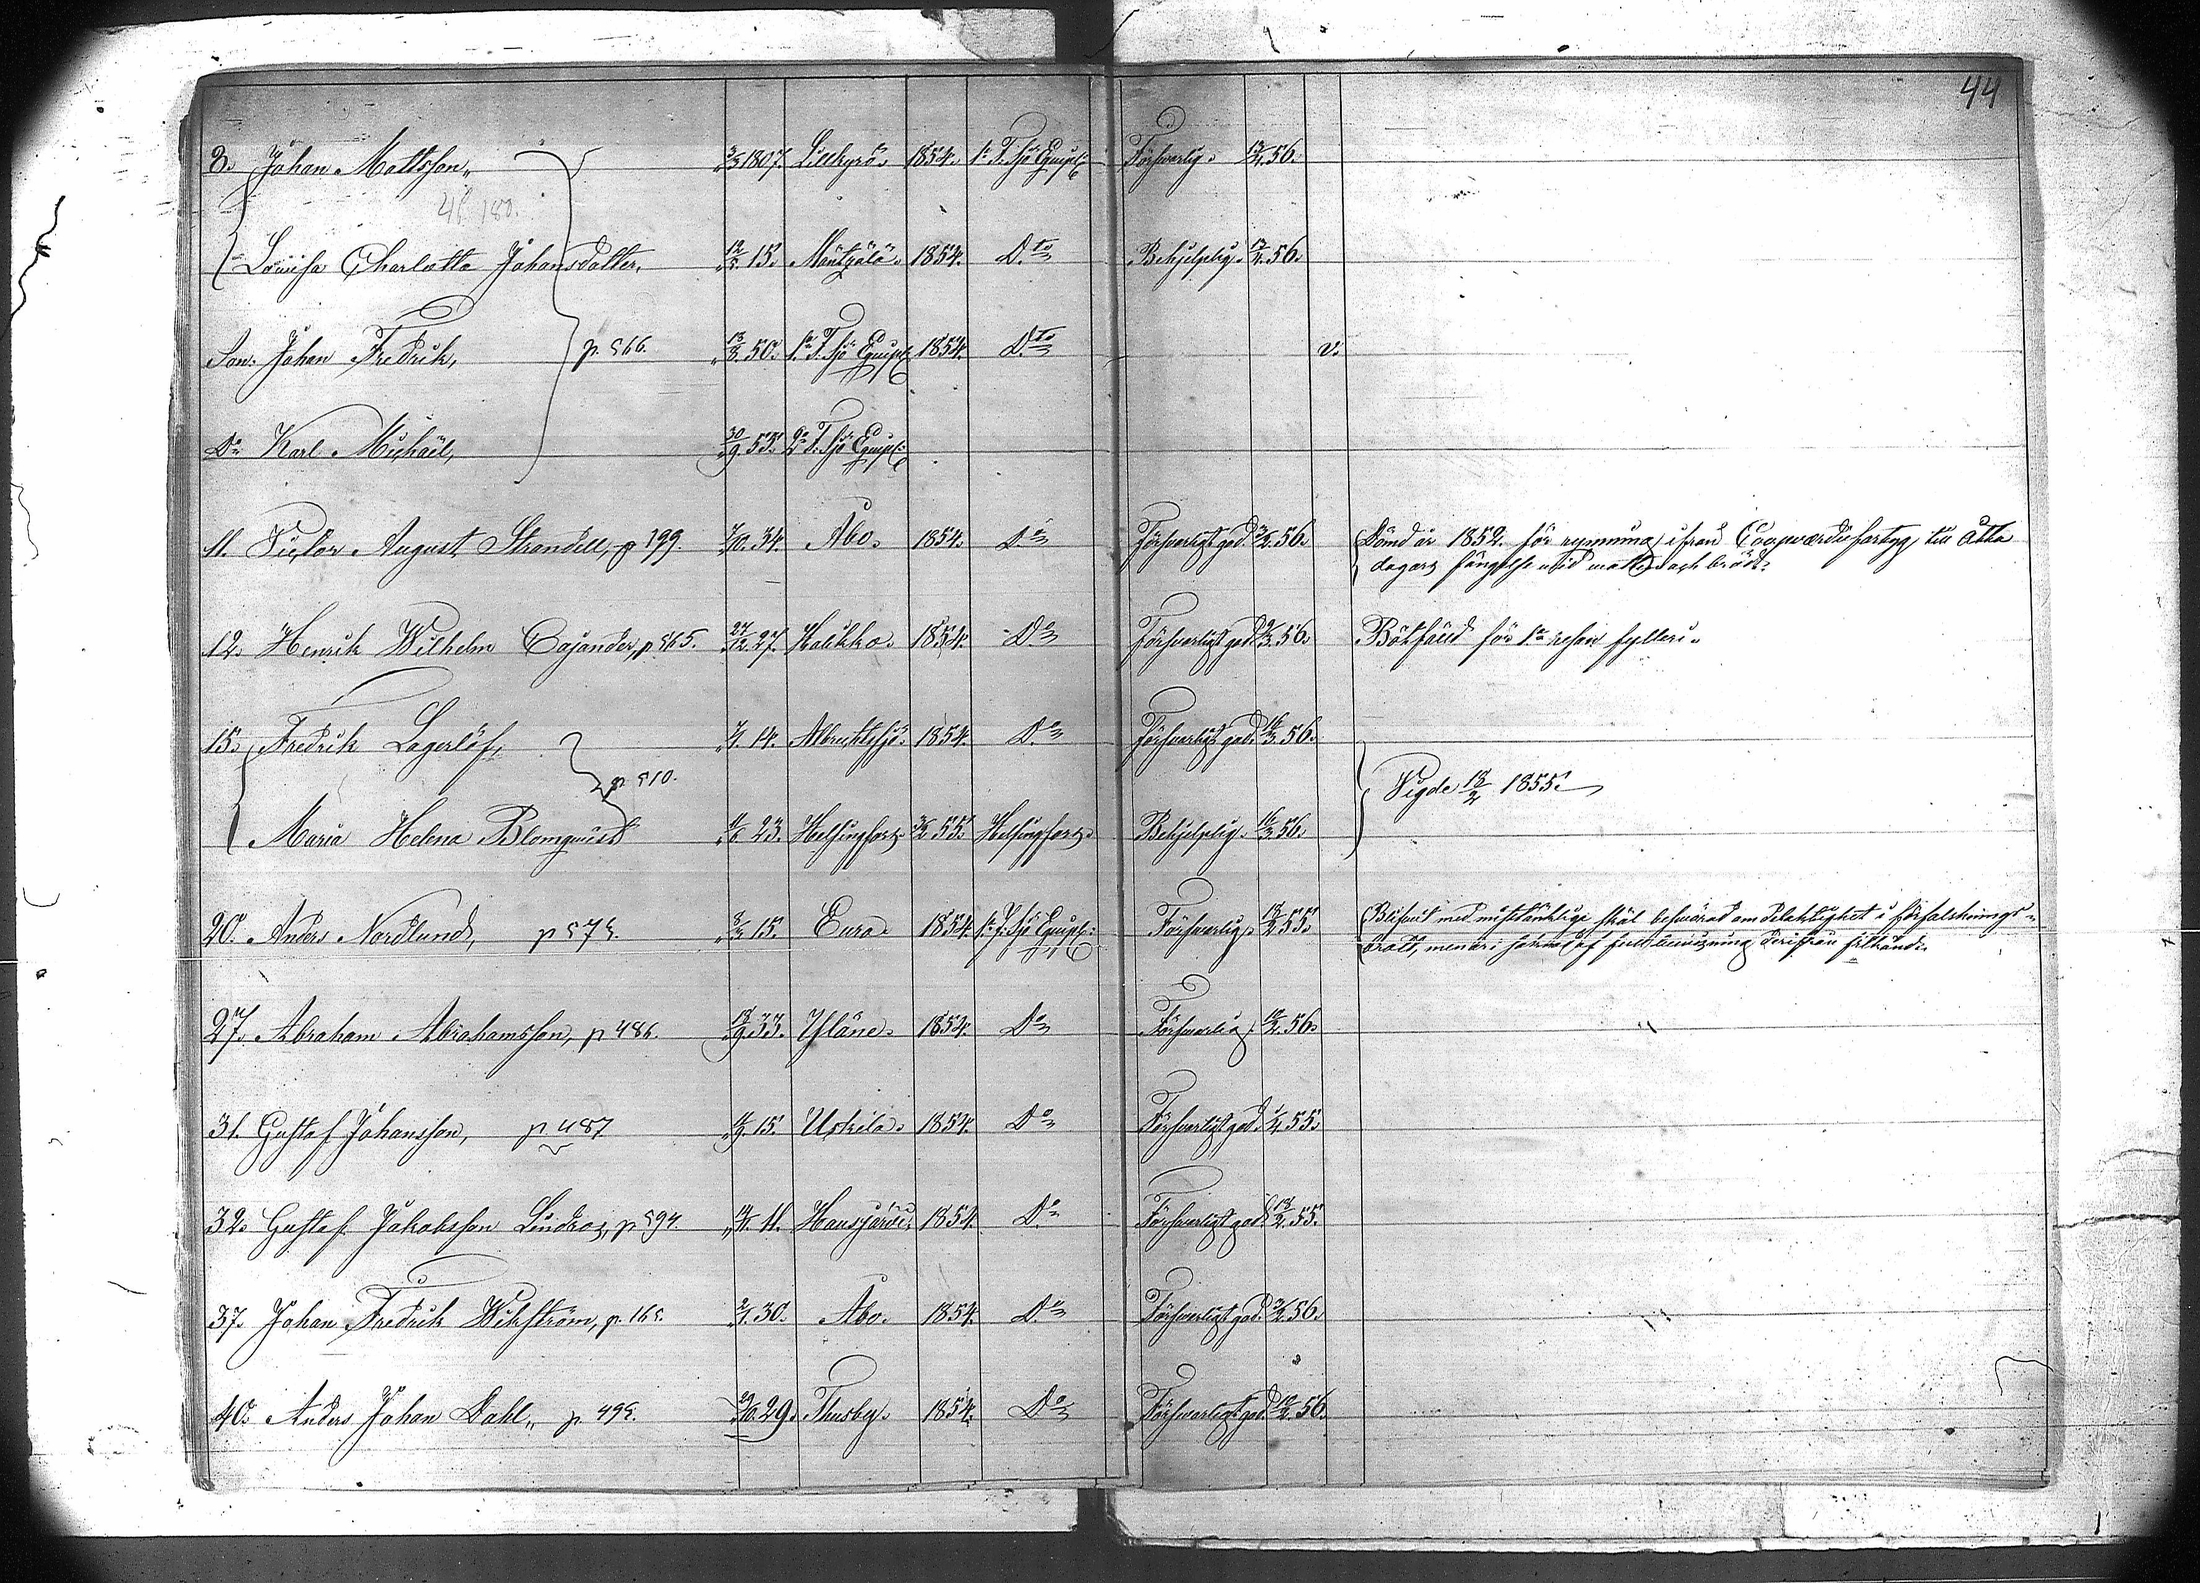 44
8. Johan Mattsson, 1807. Lillkyro. 1854. 1a F. Sjö Equipl: Försvarlig. 56.
4 f. 180.
Lovisa Charlotta Johansdotter, 15. Mäntzälä. 1854. Dto Behjelplig. 56.
Son. Johan Fredrik, p. 566. 50. 1a F. Sjö Equipl: 1854. Dto v.
Do Karl Michaël, 30/9 53. 2a F. Sjö Equipl:
11. Victor August Strandell, p 199. 34. Åbo. 1854. Do Försvarligt god. 56. Dömd år 1852 för rymning ifrån Coopværdiefartyg till åtta
dagars fängelse vid vatten och bröd.
12. Henrik Wilhelm Cajander, p 565. 27/12 27. Halikko. 1854. Do Försvarligt god. 56. Bötfäld för 1a resan fylleri.
15. Fredrik Lagerlöf, 14. 1854. Do Försvarligt god. 56.
p 510. Vigde 18/2 1855.
Maria Helena Blomqvist 23. Helsingfors 55. Helsingfors. Behjelplig. 56.
20. Anders Nordlund, p 575. 15. Eura. 1854. 1a F. Sjö Equipl: Försvarlig. 18/2 55. Blifvit med misstänklige skäl besvärad om delaktighet i förfalsknings-
brott, men i saknad af full bevisning derifrån
27. Abraham Abrahamsson, p 486. 18/9 33. Yläne. 1854. Do Försvarlig. 56. "
31. Gustaf Johansson, p 487 15. Uskela. 1854. Do Försvarligt god. 55.
32. Gustaf Jakobsson Lindros, p 594. 11. Hausjärvi. 1854. Do Försvarligt god. 18/2 55.
37. Johan Fredrik Wikström, p. 165. 30. Åbo. 1854. Do Försvarligt god. 56. "
40. Anders Johan Dahl, p 495. 29. Thusby. 1854. Do Försvarligt god. 56.